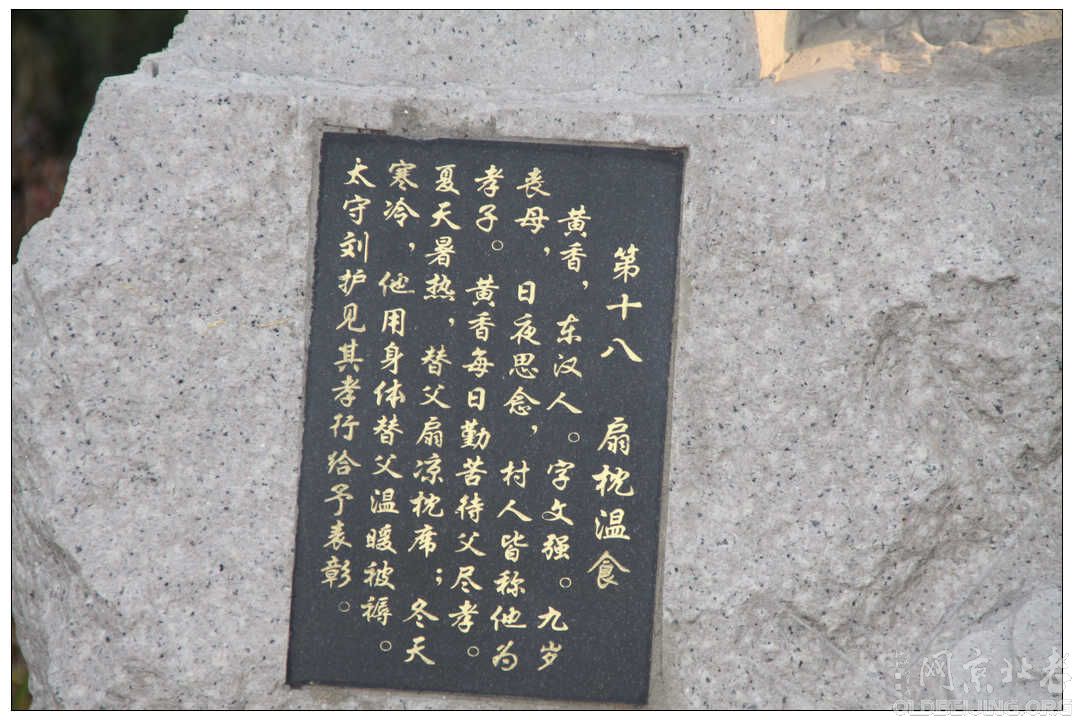 第十八 扇枕温食
黄香，东汉人。字文强。九岁
丧母，日夜思念，村人皆称他为
孝子。黄香每日勤苦待父尽孝。
夏天暑热，替父扇凉枕席；冬天
寒冷，他用身体替父温暖被褥。
太守刘护见其孝行给予表彰。
老北京网
OLDBEIJING.ORG